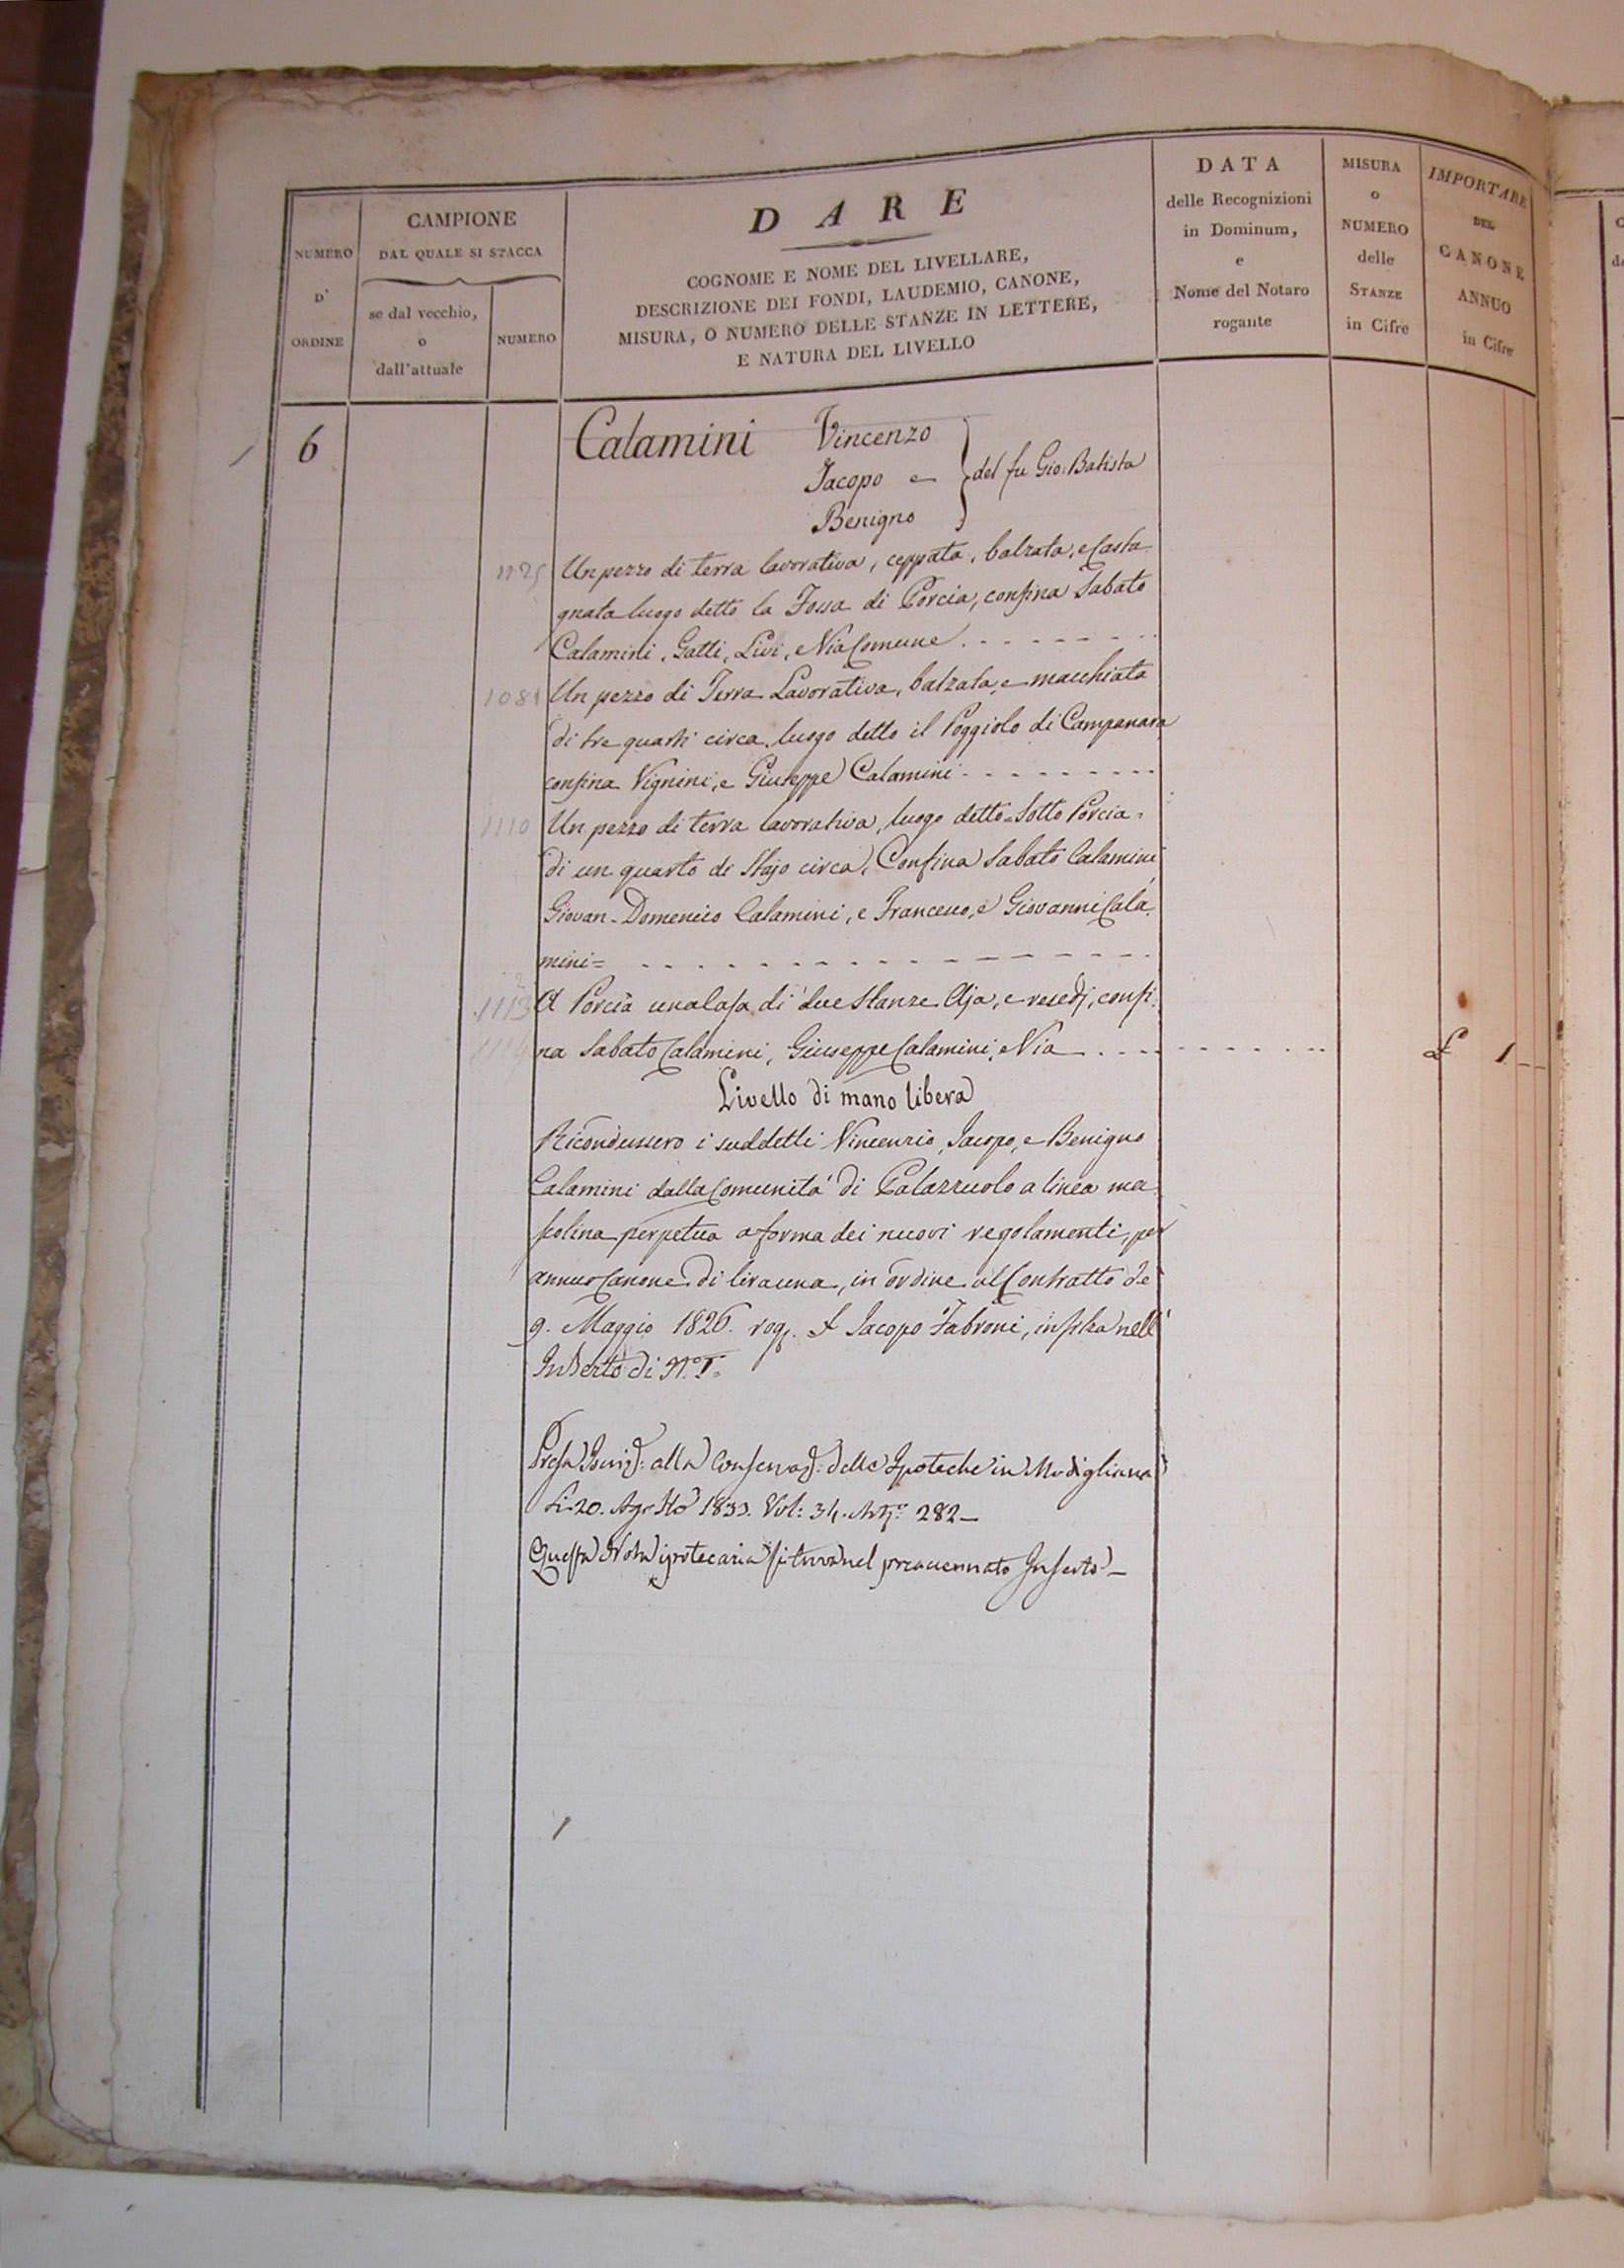 NUMERO
D'
ORDINE
CAMPIONE
DAL QUALE SI STACCA
se dal vecchio,
o
dall'attuale
NUMERO
DARE
COGNOME E NOME DEL LIVELLARE,
DESCRIZIONE DEI FONDI, LAUDEMIO, CANONE,
MISURA, O NUMERO DELLE STANZE IN LETTERE,
E NATURA DEL LIVELLO
DATA
delle Recognizioni
in Dominum,
e
Nome del Notaro
rogante
MISURA
o
NUMERO
delle
STANZE
in Cifre
IMPORTARE
DEL
CANONE
ANNUO
in Cifre
6
Calamini Vincenzo
Jacopo e del fu Gio: Batista
Benigno
1125 Un pezzo di terra lavorativa, ceppata, balzata, e Casta-
gnata luogo detto la Fossa di Porcia, confina Sabato
Calamini, Gatti, Livi, e Via Comune
1081 Un pezzo di Terra Lavorativa, balzata, e macchiata
di tre quarti circa, luogo detto il Poggiolo di Campanara
confina Vignini, e Giuseppe Calamini
1110 Un pezzo di terra lavorativa, luogo detto = Sotto Porcia =
di un quarto di Stajo circa, Confina Sabato Calamini
Giovan-Domenico Calamini, e Francesco, e Giovanni Cala-
mini =
1113 A Porcia una Casa di due Stanze Aja, e resedj, confi-
na Sabato Calamini, Giuseppe Calamini, e Via £ 1
Livello di mano libera
Ricondussero i suddetti Vincenzio, Jacopo, e Benigno
Calamini dalla Comunità di Palazzuolo a linea ma-
scolina perpetua a forma dei nuovi regolamenti, per
annuo Canone di lira una, in ordine al Contratto de
9. Maggio 1826. rog. Jacopo Fabroni, nell'
Inserto di N.° 1.
Presa Iscriz: alla Conservaz: delle Ipoteche in Modigliana
Li 20. Agosto 1833. Vol: 34. 282 –
Questa Nota ipotecaria si trova nel preaccennato Inserto –